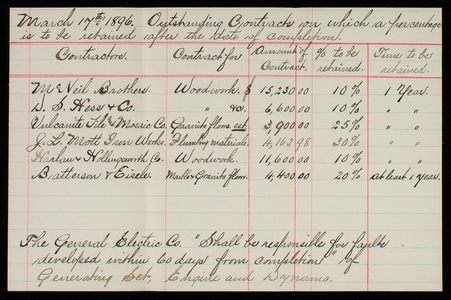 March 17th 1896. Outstanding Contracts on which a percentage
is to be retained after the date of completion.
Contractors. Contract for Amount of Contract. % to be retained. Time to be retained.
McNeil Brothers. Woodwork. $ 15,230 00 10% 1 Year.
D. S. Hess & Co. " &c. 6,600 00 10% " "
Vulcanite Tile & Mosaic Co. Granito floors, est. 3,900 00 25% " "
J. L. Mott Iron Works. Plumbing materials. 4,162 98 30% " "
Harlan & Hollingsworth Co. Woodwork. 11,600 00 10% " "
Batterson & Eisele. Marble & Granito floors. 4,400 00 20% at least 1 year.
The General Electric Co. "Shall be responsible for faults
developed within 60 days from completion" of
Generating Set, Engine and Dynamo.